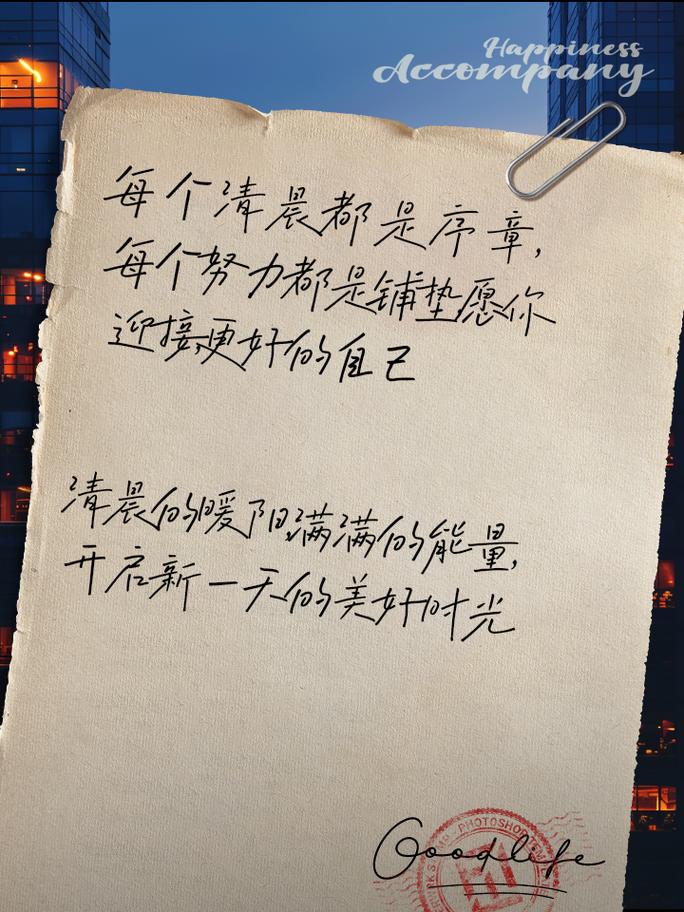 Happiness
Accompany
每个清晨都是序章,
每个努力都是铺垫,愿你
迎接更好的自己
清晨的暖阳,满满的能量,
开启新一天的美好时光
PHOTOSHOP
Goodlife